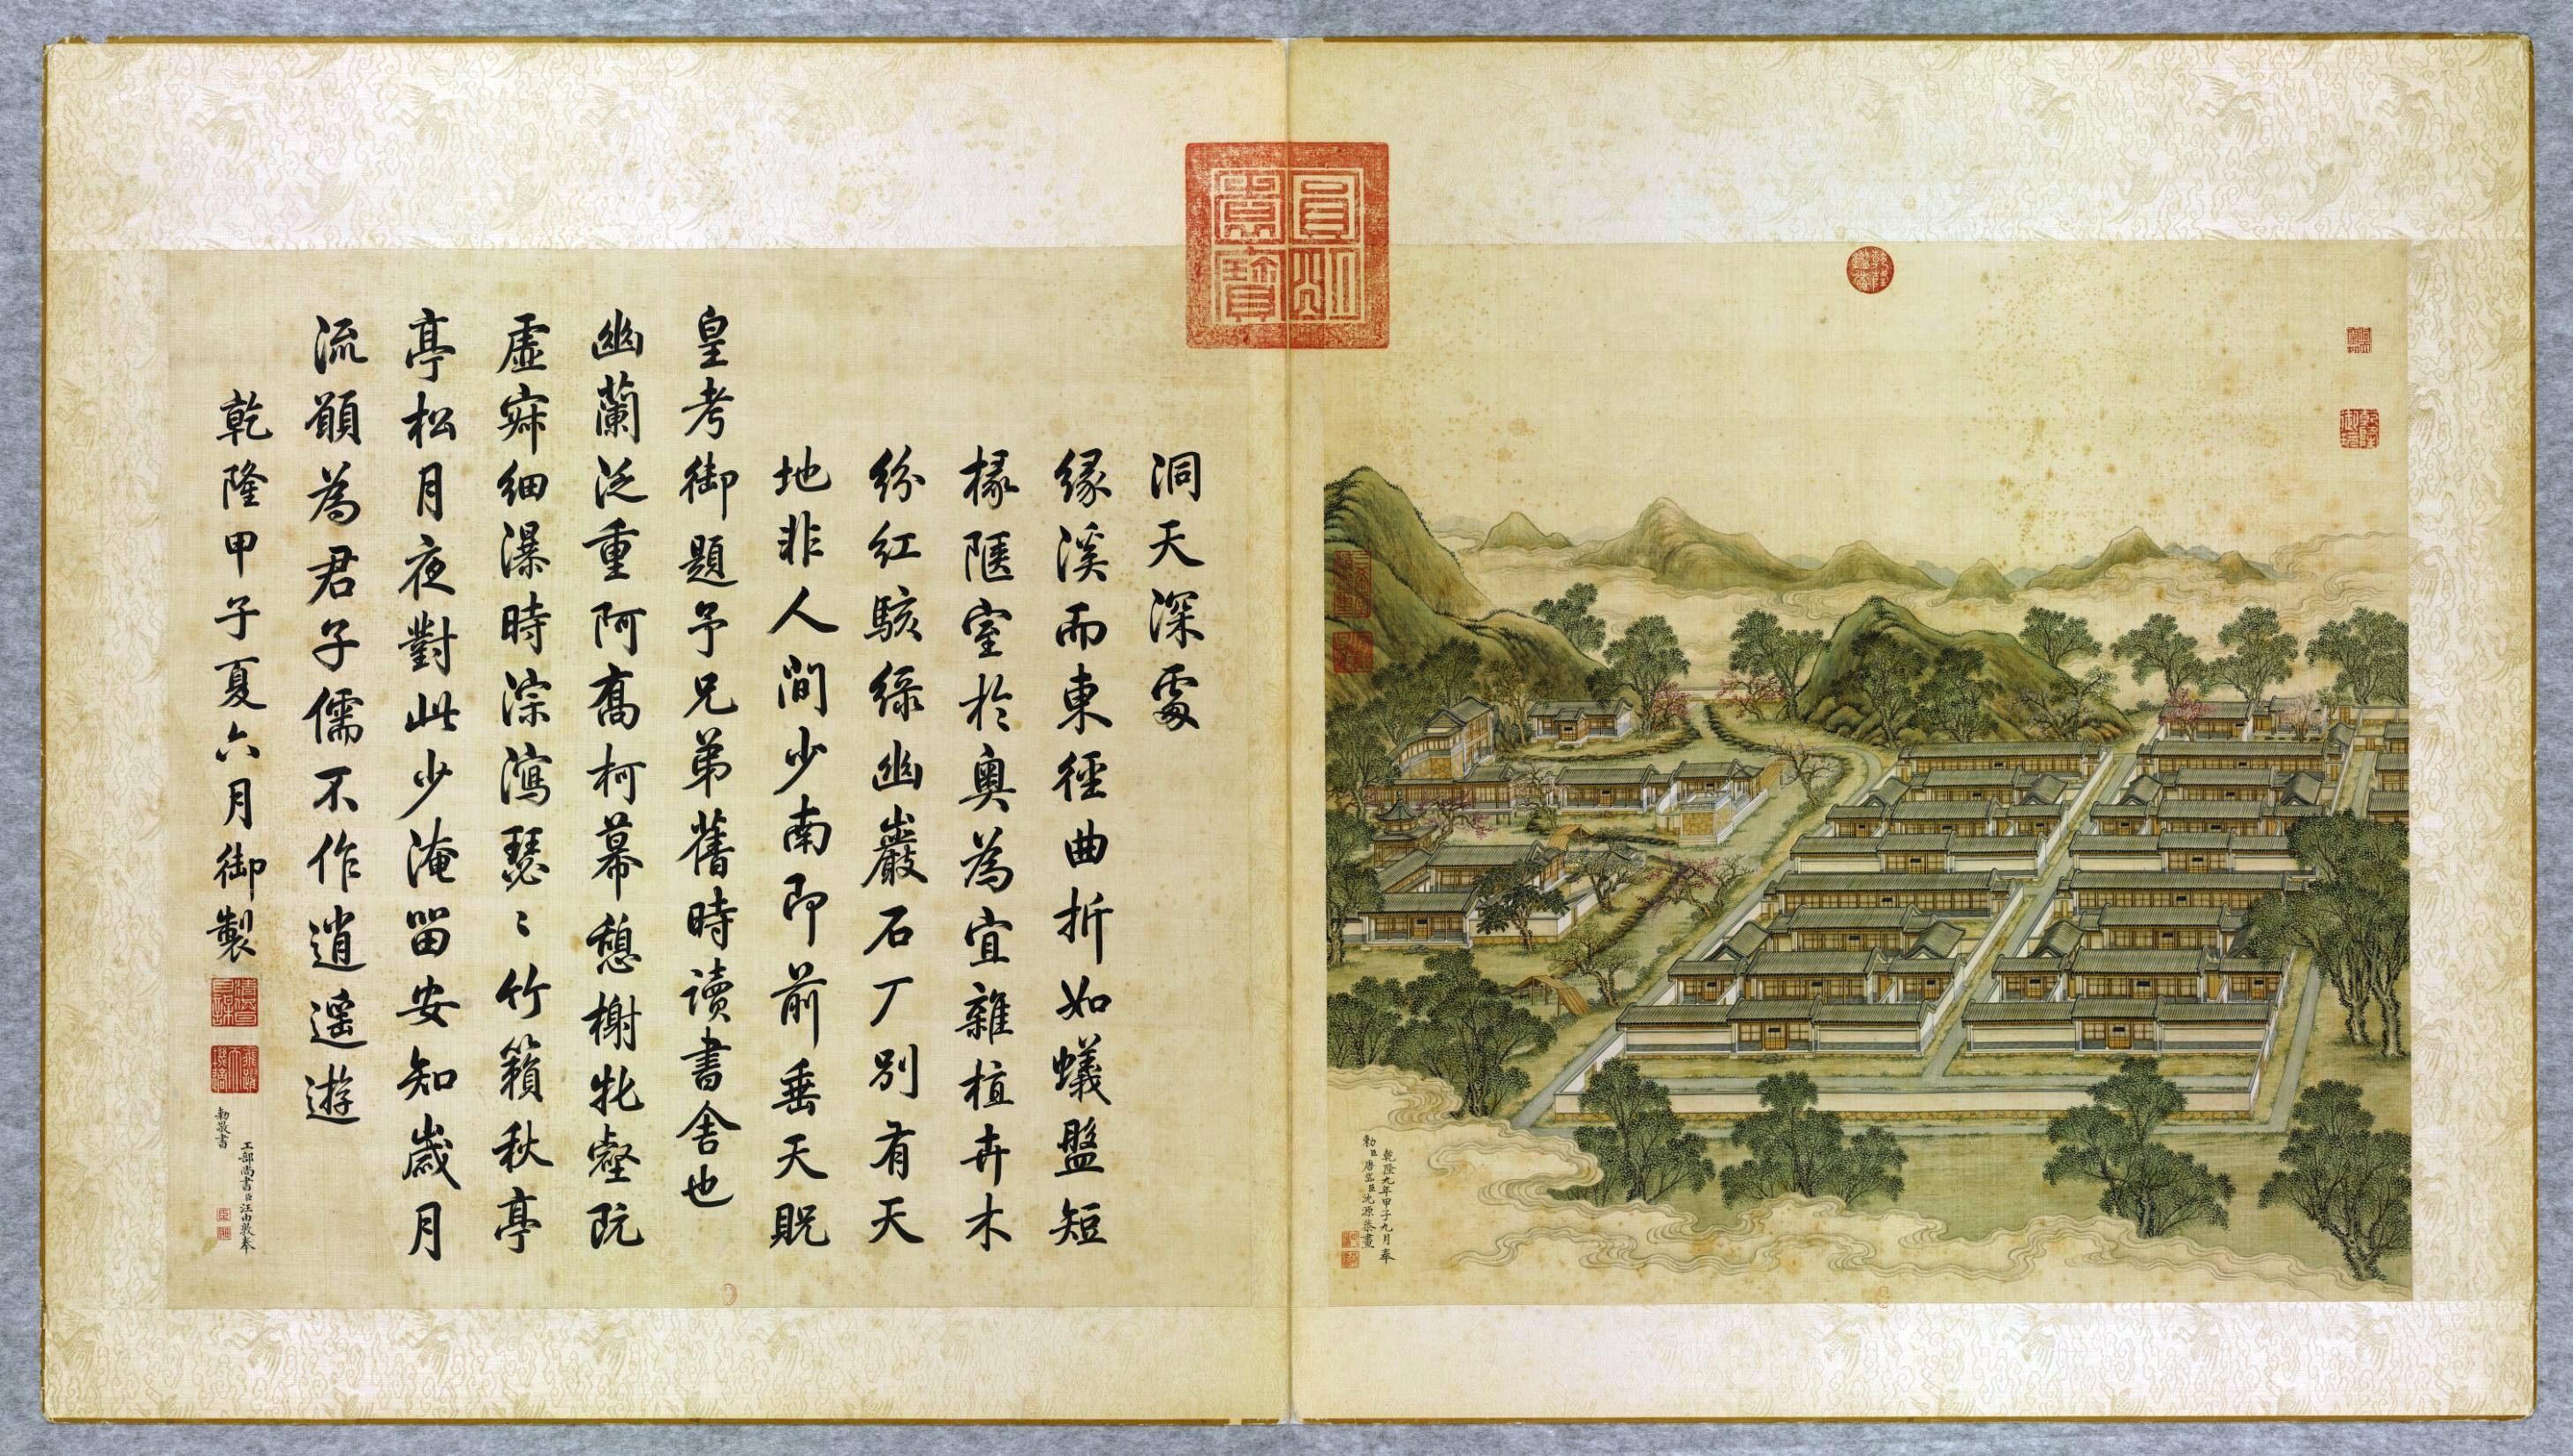 洞天深處
緣溪而東徑曲折如蟻盤短
椽陋室於奧為宜雜植卉木
紛紅駭綠幽巖石厂別有天
地非人間少南即前垂天貺
皇考御題予兄弟舊時讀書舍也
幽蘭泛重阿喬柯幕憩榭牝壑阮
虛寂細瀑時淙瀉瑟〻竹籟秋亭
亭松月夜對此少淹留安知歲月
流願為君子儒不作逍遙遊
乾隆甲子夏六月御製
工部尚書臣汪由敦奉
勅敬書
乾隆九年甲子九月奉
勅臣唐岱臣沈源恭畫